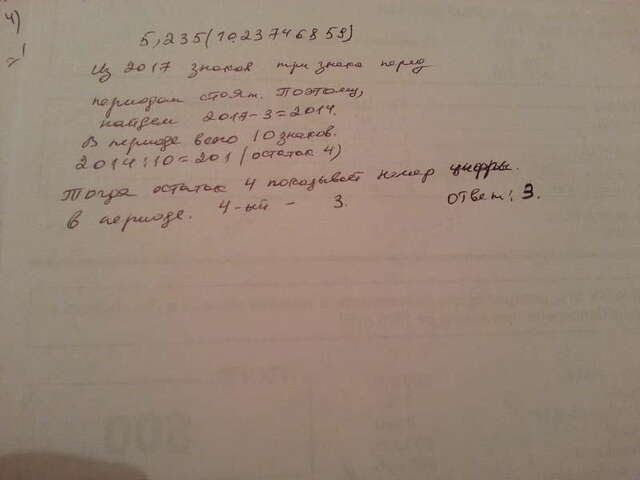 4)
5,235(1023746859)
Из 2017 знаков три знака перед
периодом стоят. Поэтому,
найдем 2017-3=2014.
В периоде всего 10 знаков.
2014:10=201 (остаток 4)
Тогда остаток 4 показывает номер цифры.
в периоде. 4-ый - 3. Ответ: 3.